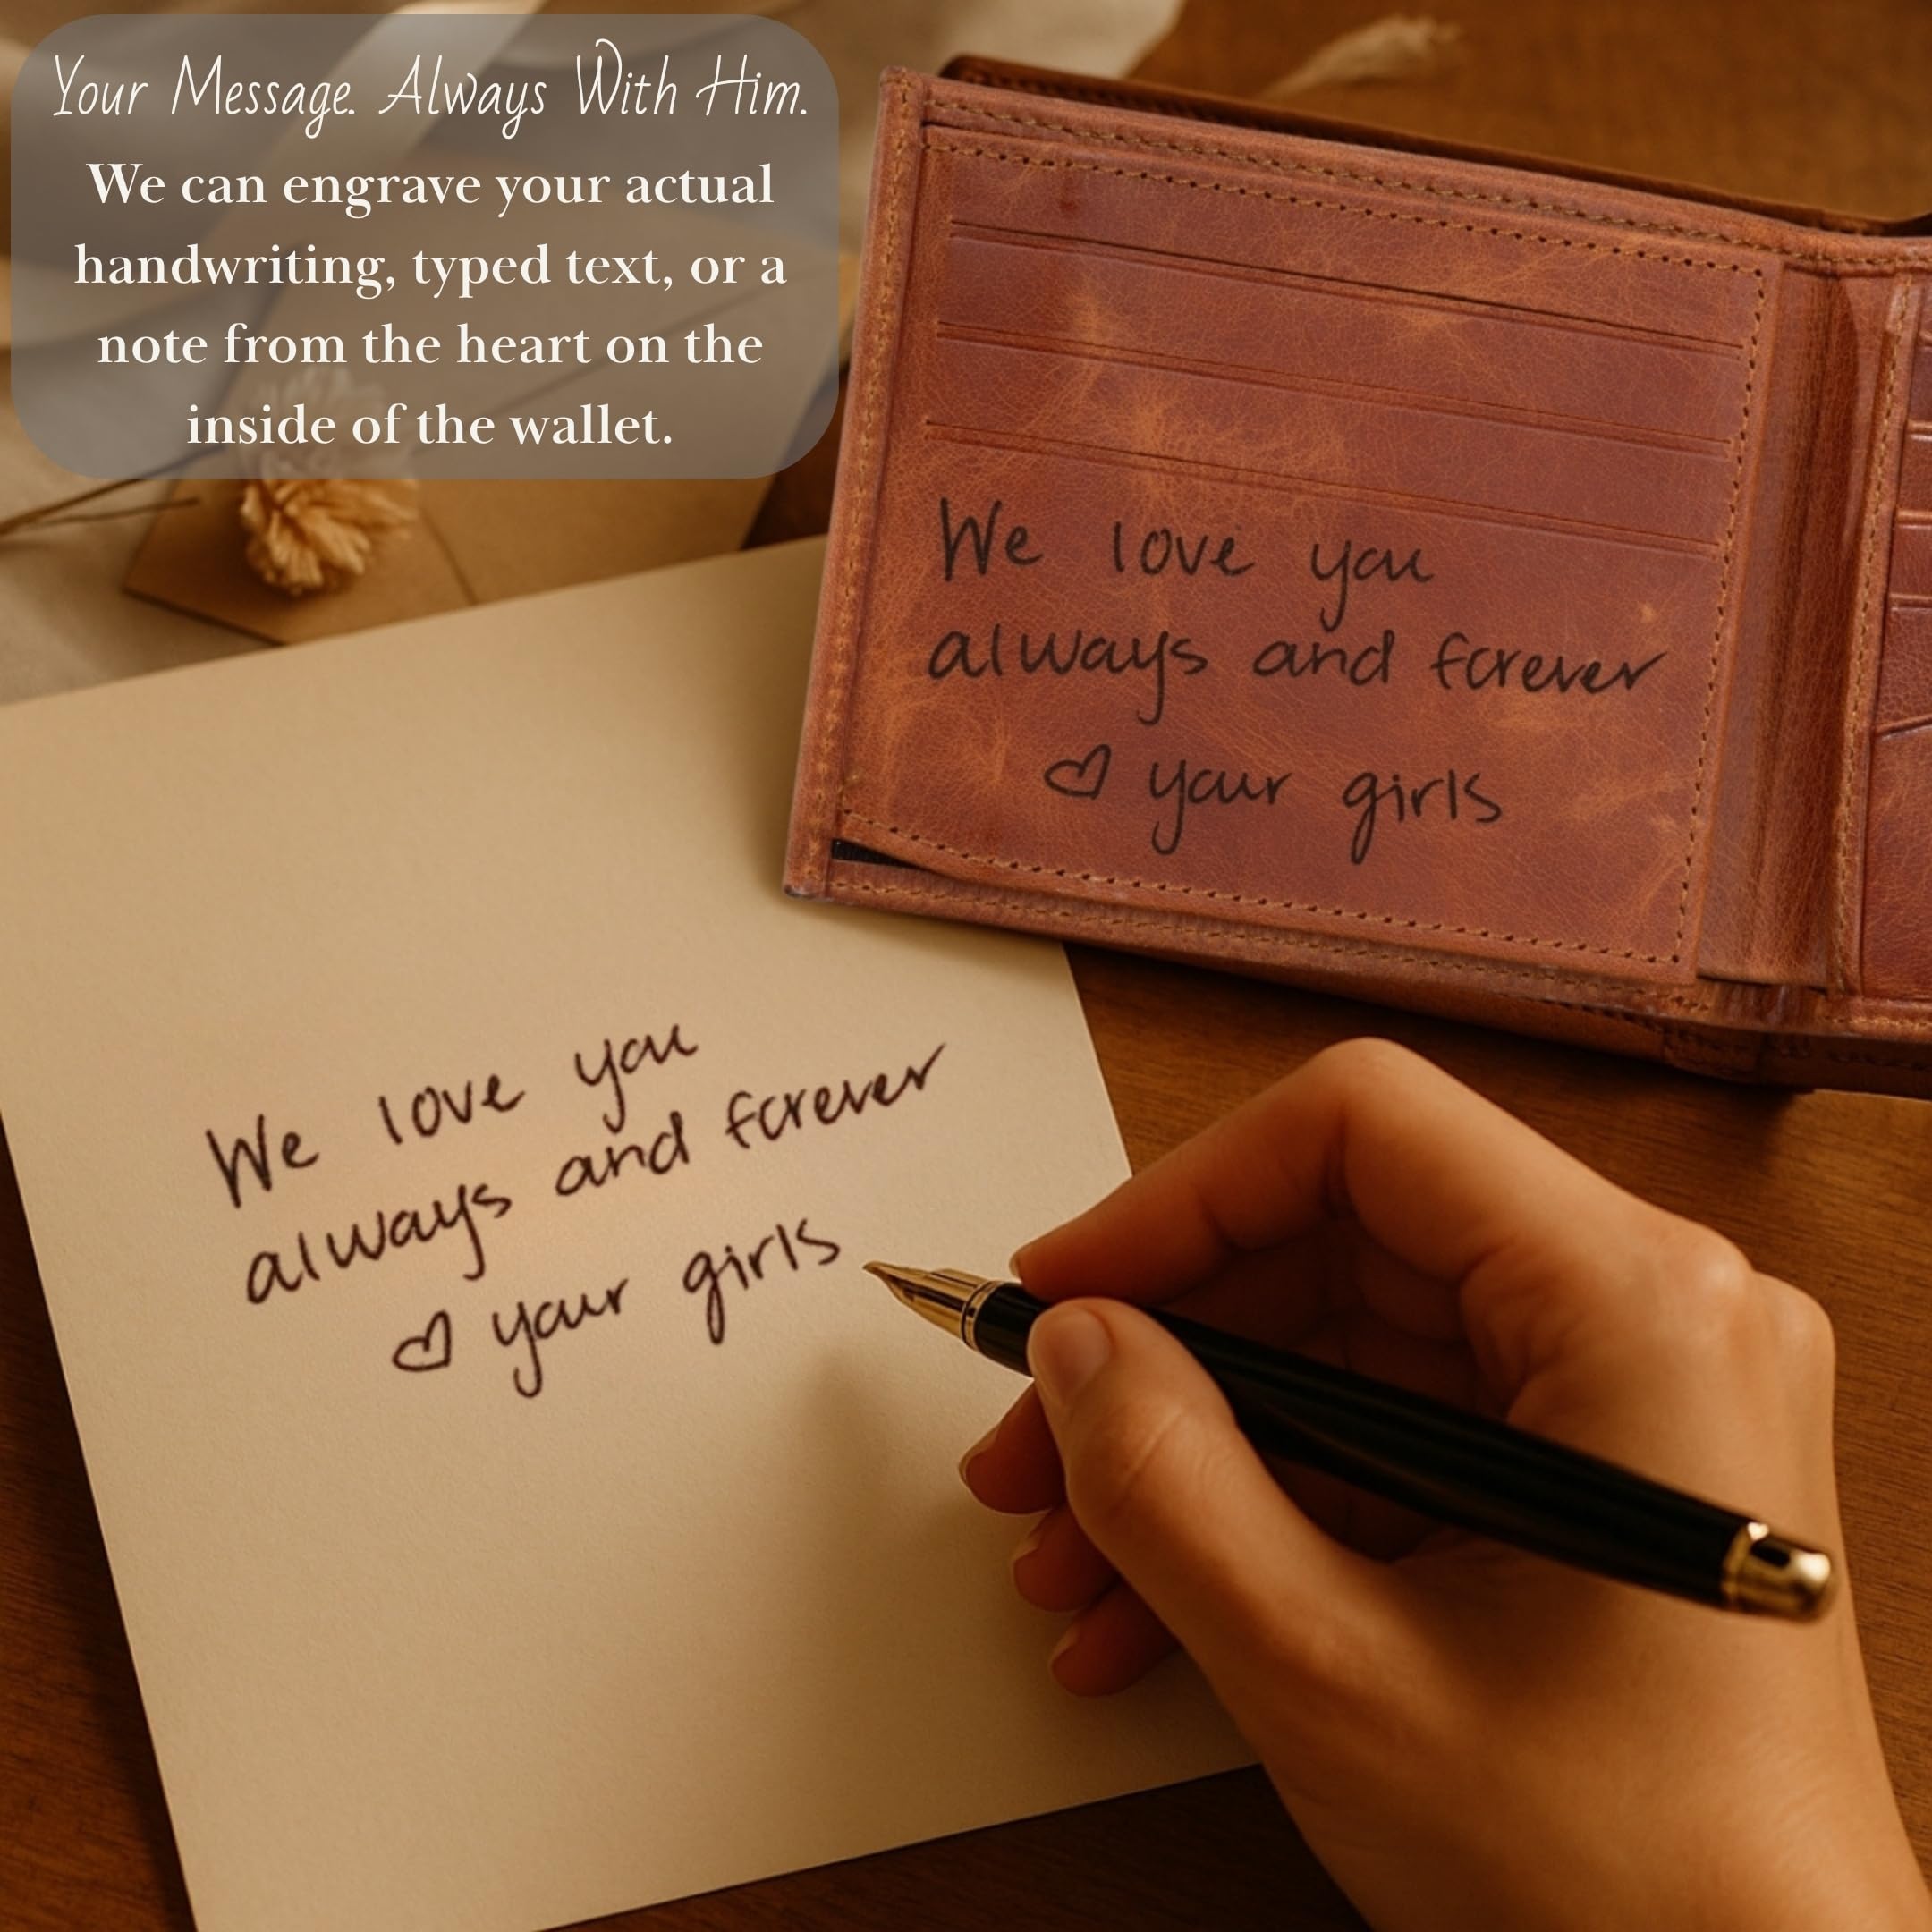 Your Message. Always With Him.
We can engrave your actual
handwriting, typed text, or a
note from the heart on the
inside of the wallet.
We love you
always and forever
♡ your girls
We love you
always and forever
♡ your girls